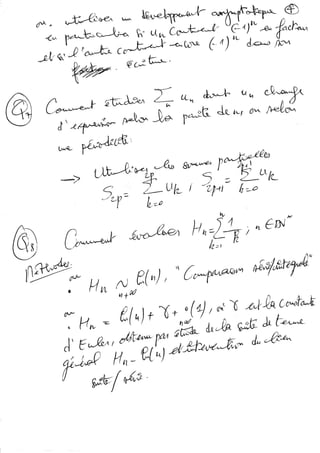 ou. utiliser un développement asymptotique ④
en particulier si u_n contient (-1)^n en facteur
et si l'autre contient encore (-1)^n dans son
écriture.
Q17 Comment étudier Σ u_n dont u_n change
d'expression selon la parité de n, ou selon
une périodicité.
→ Utiliser les sommes partielles
S_{2p} = Σ_{k=0}^{2p} u_k ; S_{2p+1} = Σ_{k=0}^{2p+1} u_k
Q18 Comment évaluer H_n = Σ_{k=1}^{n} 1/k ; n ∈ IN*
Méthodes:
ou • H_n ~_{n→+∞} ln(n), "Comparaison série/intégrale"
ou • H_n = ln(n) + γ + o(1), où γ est la constante
d'Euler, obtenu par étude de la suite de terme
général H_n - ln(n) et intervention du lien
suite/série.